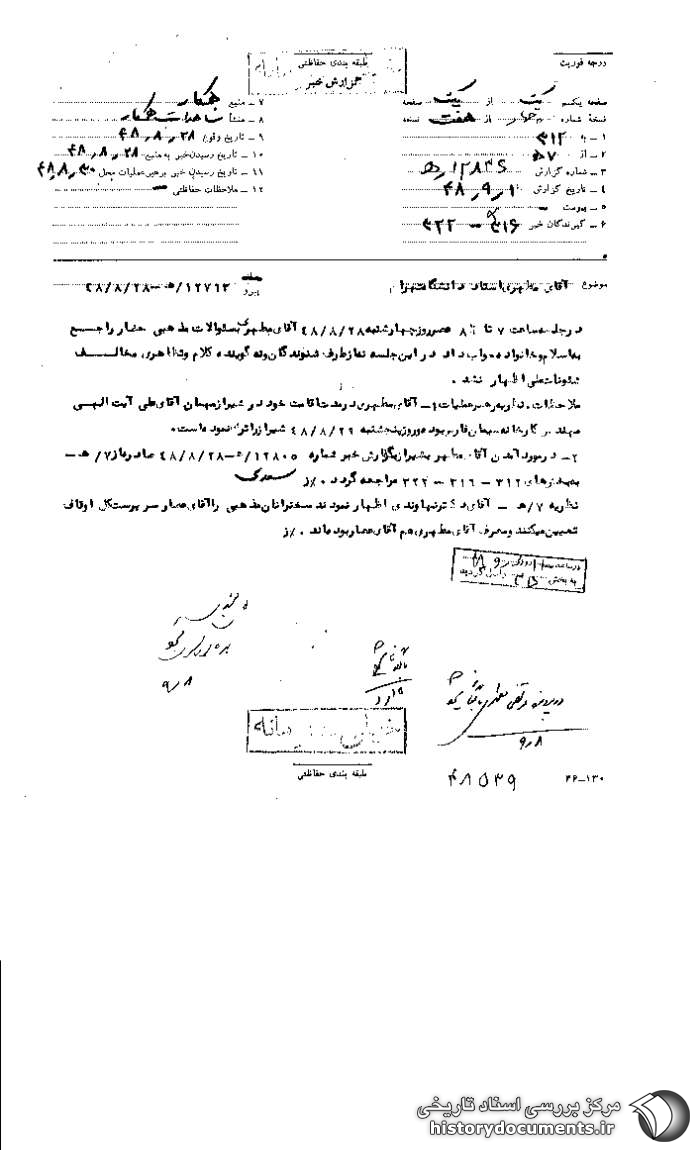 درجه فوریت
طبقه بندی حفاظتی
گزارش خبر
صفحه یکم یک از یک صفحه
نسخه شماره از هفت نسخه
۱ ـ به ۳۱۲
۲ ـ از ۷ه
۳ ـ شماره گزارش ۱۲۸۳۶/ه
۴ ـ تاریخ گزارش ۴۸/۹/۱
۵ ـ پیوست ـ
۶ ـ گیرندگان خبر ۳۱۶ ـ ۳۲۲
۷ ـ منبع همکار
۸ ـ منشأ مشاهدات همکار
۹ ـ تاریخ وقوع ۴۸/۸/۲۸
۱۰ ـ تاریخ رسیدن خبر به منبع ۴۸/۸/۲۸
۱۱ ـ تاریخ رسیدن خبر برهبر عملیات محل ۴۸/۸/۳۰
۱۲ ـ ملاحظات حفاظتی ـ
موضوع آقای مطهری استاد دانشگاه تهران
پیرو ۱۲۷۶۳/ه ـ ۴۸/۸/۲۸
در جلسه ساعت ۷ تا ۸ عصر روز چهارشنبه ۴۸/۸/۲۸ آقای مطهری بسئوالات مذهبی حضار راجع
به اسلام و خانواده جواب داد در این جلسه نه از طرف شنوندگان و نه گوینده کلام و تظاهری مخالف
شئونات ملی اظهار نشد .
ملاحظات . نظریه رهبر عملیات ۱ـ آقای مطهری در مدت اقامت خود در شیراز میهمان آقای علی آیت الهی
مهندس کارخانه سیمان فارس بود و روز پنجشنبه ۴۸/۸/۲۹ شیراز را ترک نموده است.
۲ ـ در مورد آمدن آقای مطهری به شیراز بگزارش خبر شماره ۱۲۸۰۵/ه ـ ۴۸/۸/۲۸ صادره از ۷/ه ـ
به بخش‌های ۳۱۲ ـ ۳۱۶ ـ ۳۲۲ مراجعه گردد . سعدی
نظریه ۷/ه ـ آقای دکتر نهاوندی اظهار نمودند سخنرانان مذهبی را آقای عصار سرپرست کل اوقاف
تعیین میکنند و معرف آقای مطهری هم آقای عصار بوده‌اند .
به بخش
۹/۸
در پرونده مرتضی مطهری بایگانی شود
۹/۸
خیلی محرمانه
طبقه بندی حفاظتی
۴۸۵۳۹
۴۶-۱۳۰
مرکز بررسی اسناد تاریخی
historydocuments.ir